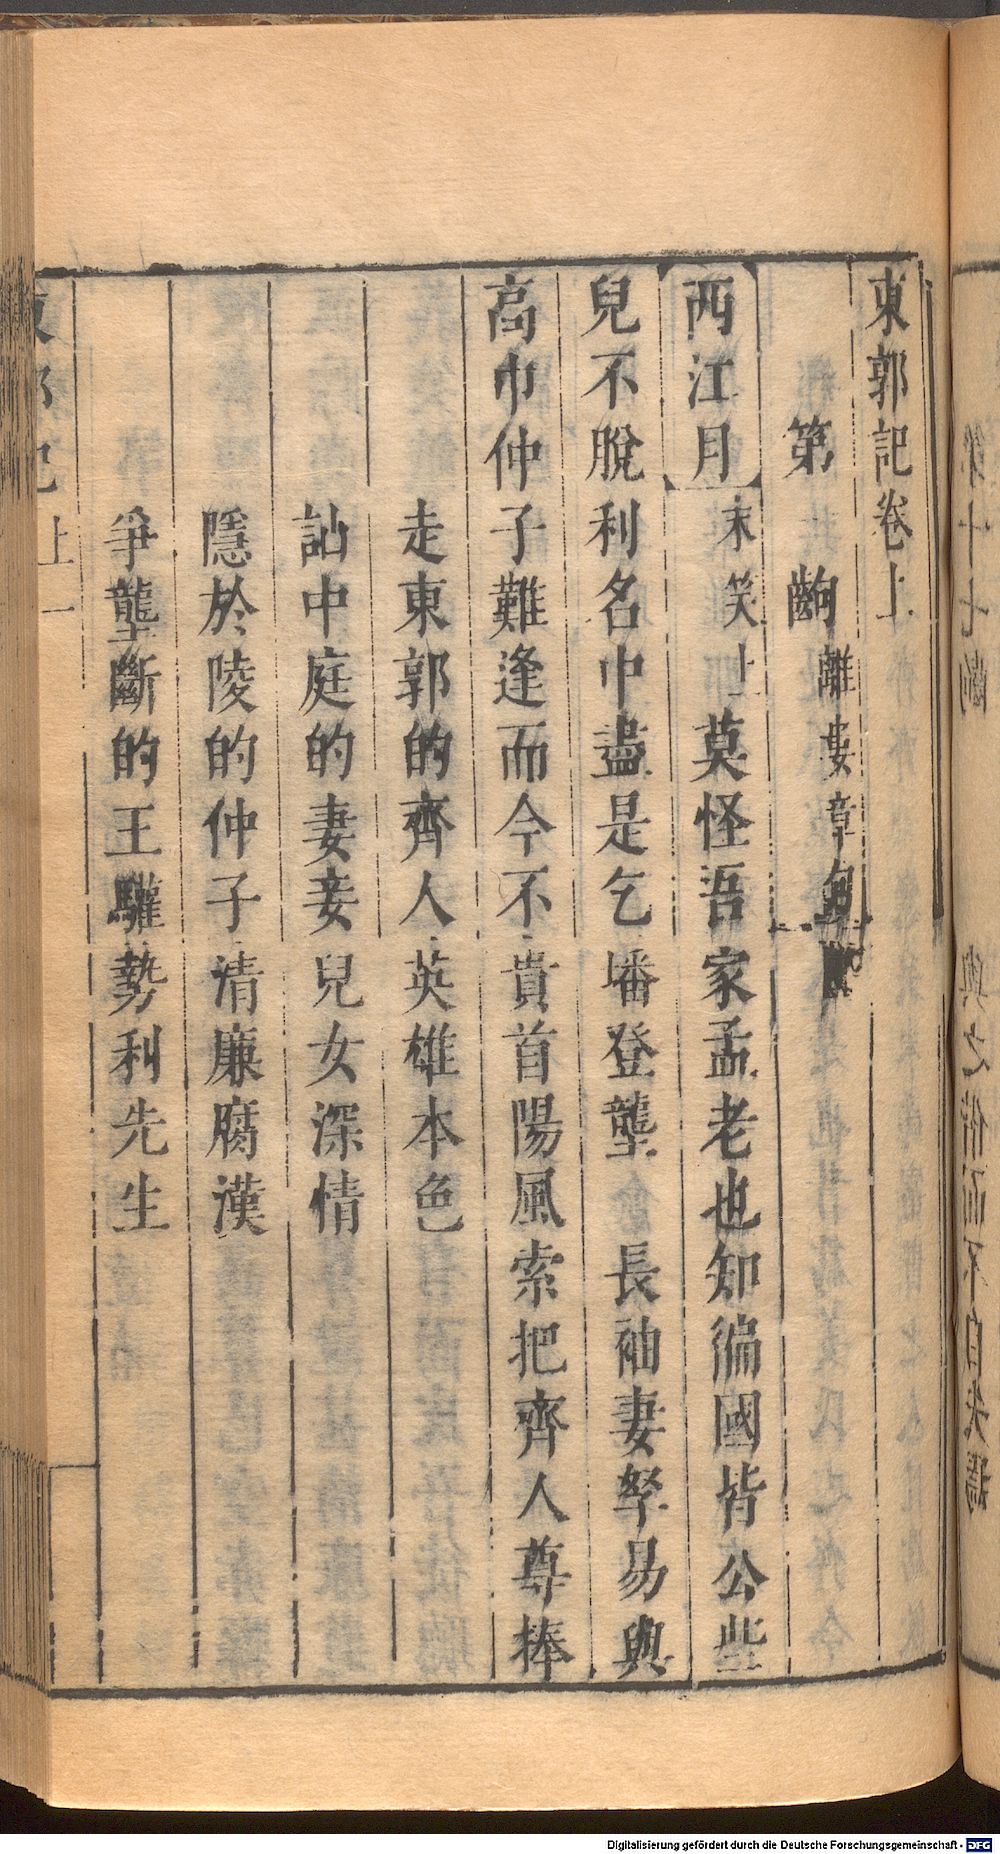 東郭記卷上
第一齣 離婁章句
西江月 末笑上 莫怪吾家孟老也知徧國皆公些
兒不脫利名中盡是乞墦登壟 長袖妻孥易與
高巾仲子難逢而今不貴首陽風索把齊人尊捧
走東郭的齊人英雄本色
訕中庭的妻妾兒女深情
隱於陵的仲子清廉腐漢
爭壟斷的王驩勢利先生
東郭記 上 一
Digitalisierung gefördert durch die Deutsche Forschungsgemeinschaft - DFG